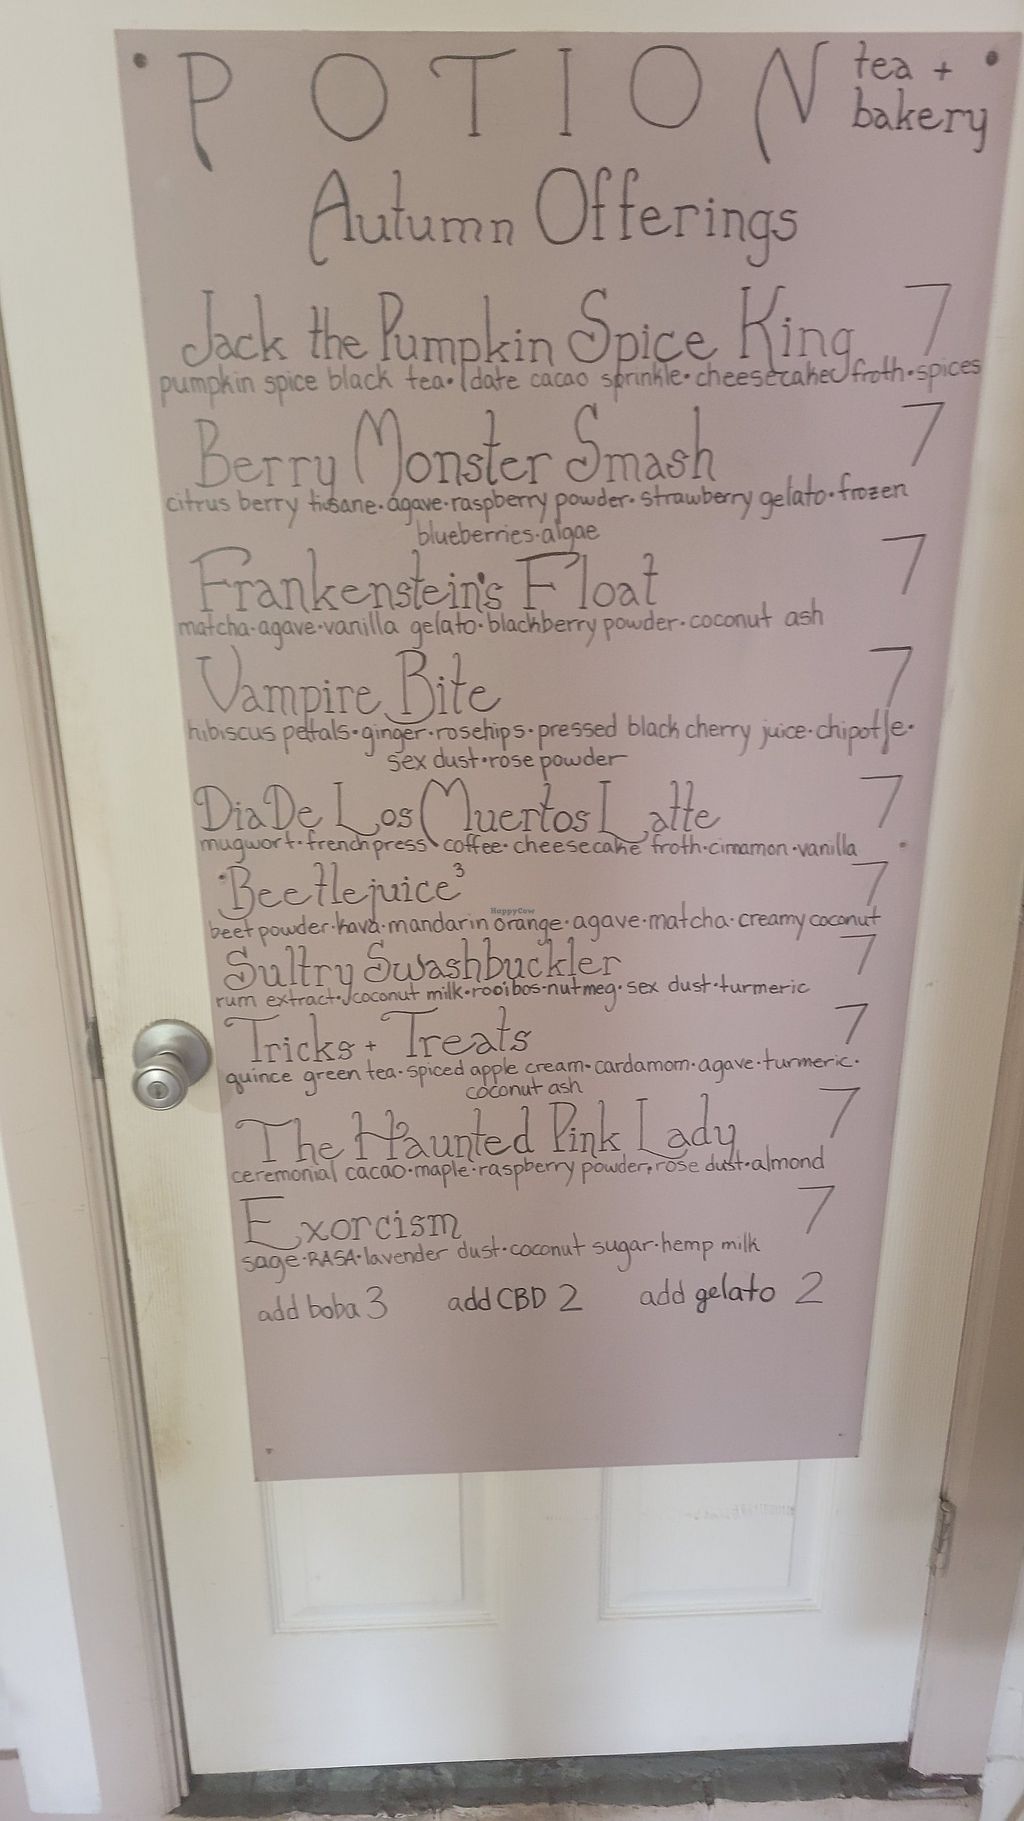 POTION tea + bakery
Autumn Offerings
Jack the Pumpkin Spice King 7
pumpkin spice black tea • date cacao sprinkle • cheesecake froth • spices
Berry Monster Smash 7
citrus berry tisane • agave • raspberry powder • strawberry gelato • frozen
blueberries • algae
Frankenstein's Float 7
matcha • agave • vanilla gelato • blackberry powder • coconut ash
Vampire Bite 7
hibiscus petals • ginger • rosehips • pressed black cherry juice • chipotle •
sex dust • rose powder
Dia De Los Muertos Latte 7
mugwort • french press coffee • cheesecake froth • cinnamon • vanilla
Beetlejuice³ 7
HappyCow
beet powder • kava • mandarin orange • agave • matcha • creamy coconut
Sultry Swashbuckler 7
rum extract • coconut milk • rooibos • nutmeg • sex dust • turmeric
Tricks + Treats 7
quince green tea • spiced apple cream • cardamom • agave • turmeric •
coconut ash
The Haunted Pink Lady 7
ceremonial cacao • maple • raspberry powder • rose dust • almond
Exorcism 7
sage • RASA • lavender dust • coconut sugar • hemp milk
add boba 3 add CBD 2 add gelato 2